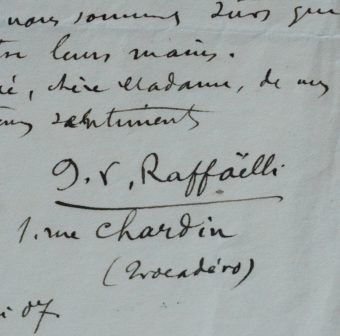 nous sommes sûrs que
leurs mains.
chère Madame, de mes
sentiments
J. F. Raffaëlli
1. rue Chardin
(Trocadéro)
07.